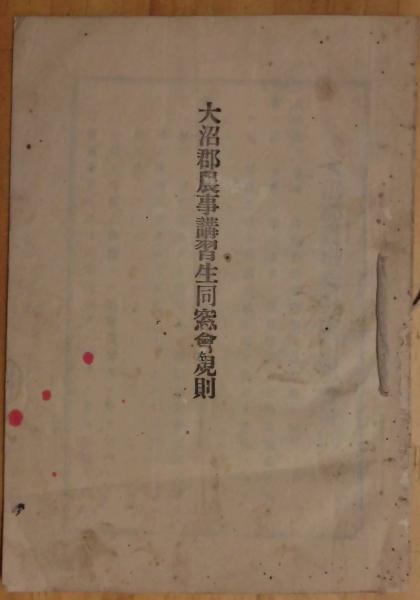 大沼郡農事講習生同窓會規則